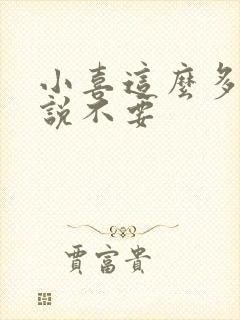 小喜這麼多
說不要
賈富貴